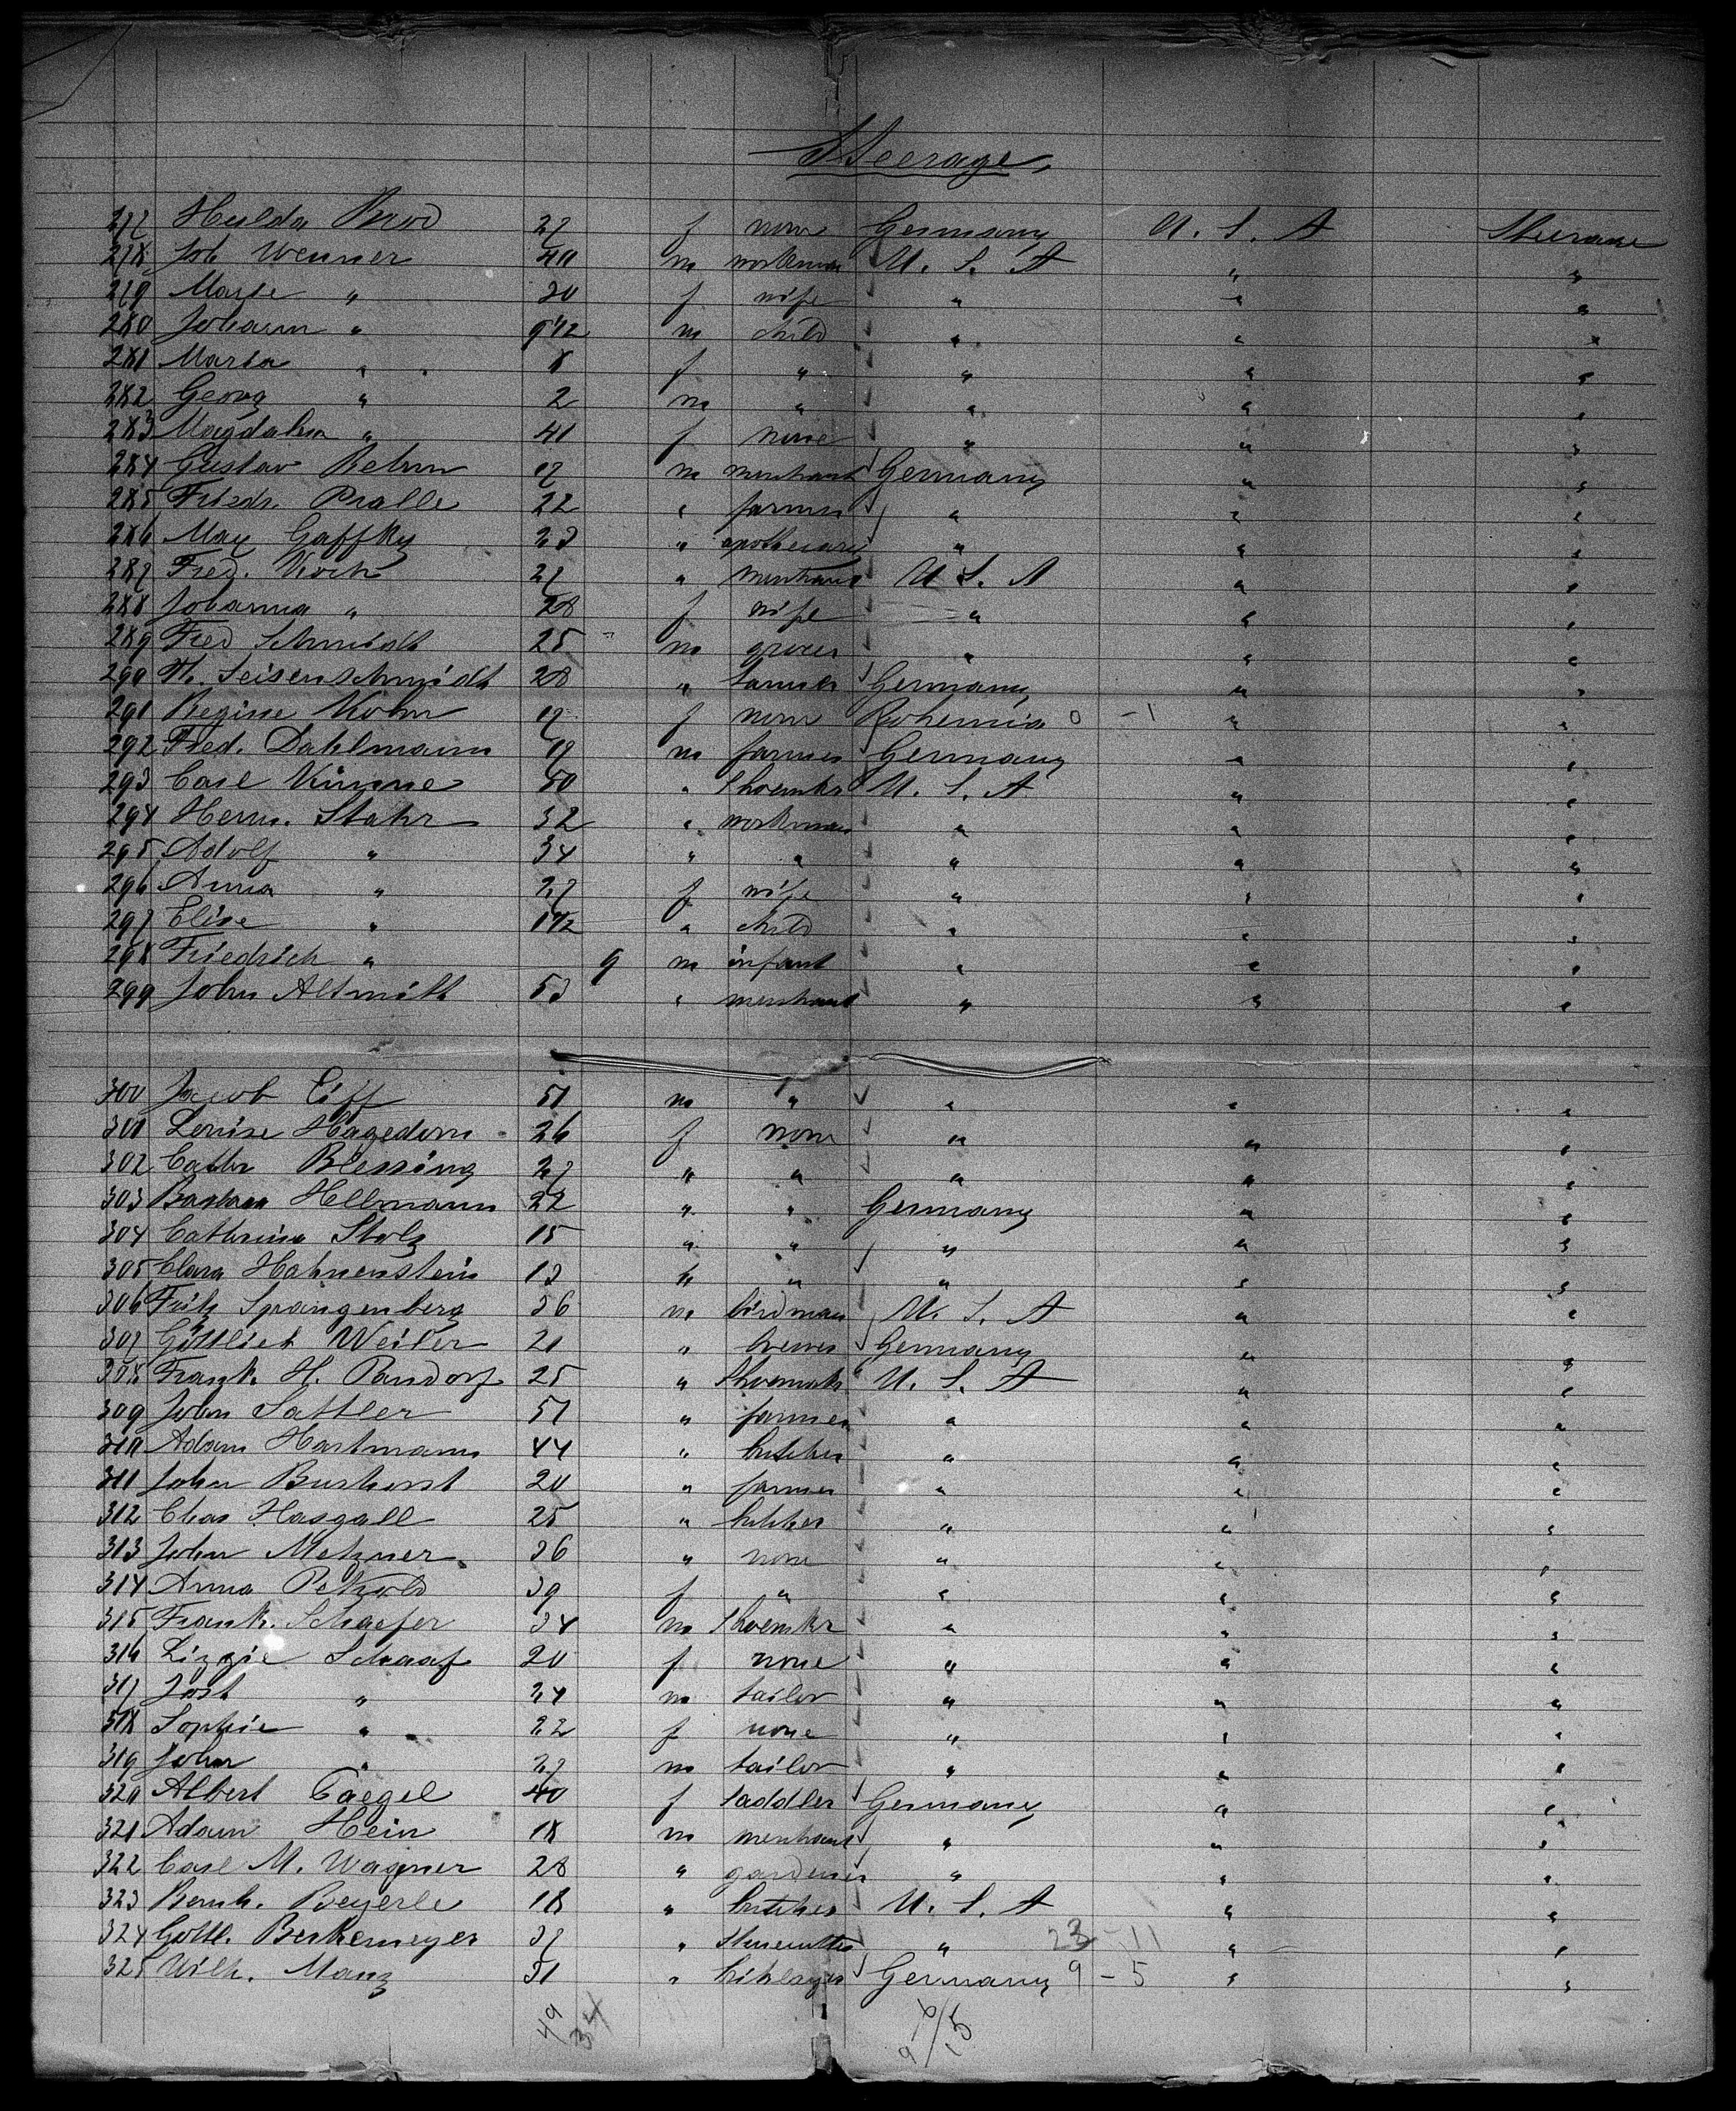 Steerage.
277 Hulda Brod 27 f none Germany U. S. A Steerage
278 Joh Wenner 40 m workman U. S. A " "
279 Marie " 30 f wife " " "
280 Johann " 9 1/2 m child " " "
281 Maria " 8 f " " " "
282 Georg " 2 m " " " "
283 Magdalen " 41 f none " " "
284 Gustav Behm 17 m merchant Germany " "
285 Friedr. Pralle 22 " farmer " " "
286 Max Gaffky 23 " apothecary " " "
287 Fred. Koch 27 " merchant U. S. A " "
288 Johanna " 28 f wife " " "
289 Fred Schmidt 25 m grocer " " "
290 H. Seisenschmidt 28 " tanner Germany " "
291 Regine Kohn 17 f none Bohemia 0 - 1 " "
292 Fred. Dahlmann 19 m farmer Germany " "
293 Carl Kinne 50 " Shoemkr U. S. A " "
294 Herm. Stahr 32 " workman " " "
295 Adolf " 34 " " " " "
296 Anna " 27 f wife " " "
297 Elise " 1 1/2 " child " " "
298 Friedrich " 9 m infant " " "
299 John Altmith 53 " merchant " " "
300 Jacob Eiff 51 m " " " "
301 Louise Hagedorn 26 f none " " "
302 Cathr Blessing 27 " " " " "
303 Barbara Hellmann 22 " " Germany " "
304 Cathrina Stolz 15 " " " " "
305 Clara Hahnenstein 13 " " " " "
306 Fritz Spangenberg 36 m birdman U. S. A " "
307 Gottlieb Weiler 21 " brewer Germany " "
308 Frank H. Pandorf 25 " Shoemak U. S. A " "
309 John Sattler 51 " farmer " " "
310 Adam Hartmann 44 " butcher " " "
311 John Bushorst 20 " farmer " " "
312 Chas Hasgall 25 " butcher " " "
313 John Metzner 36 " none " " "
314 Anna Petzold 39 f " " " "
315 Frank. Schaefer 34 m Shoemkr " " "
316 Lizzie Schaaf 20 f none " " "
317 Jost " 24 m tailor " " "
318 Sophie " 22 f none " " "
319 John " 27 m tailor " " "
320 Albert 40 f Saddler Germany " "
321 Adam Hein 18 m merchant " " "
322 Carl M. Wagner 28 " gardener " " "
323 Bernh. Beyerle 18 " butcher U. S. A " "
324 Gottl. Berkemeyer 37 " " 23 - 11 " "
325 Wilh. Manz 31 " Germany 9 - 5 " "
49 34
9/15